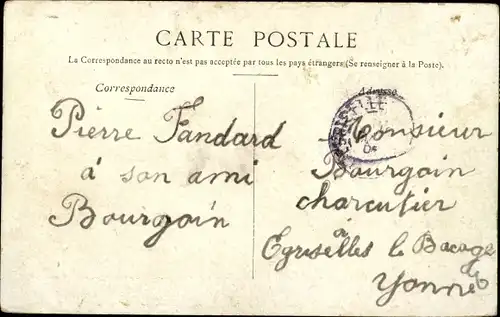 CARTE POSTALE
La Correspondance au recto n'est pas acceptée par tous les pays étrangers (Se renseigner à la Poste).
Correspondance
Pierre Fandard
à son ami
Bourgoin
Adresse
Monsieur
Bourgoin
charcutier
à
Egriselles le Bocage
Yonne